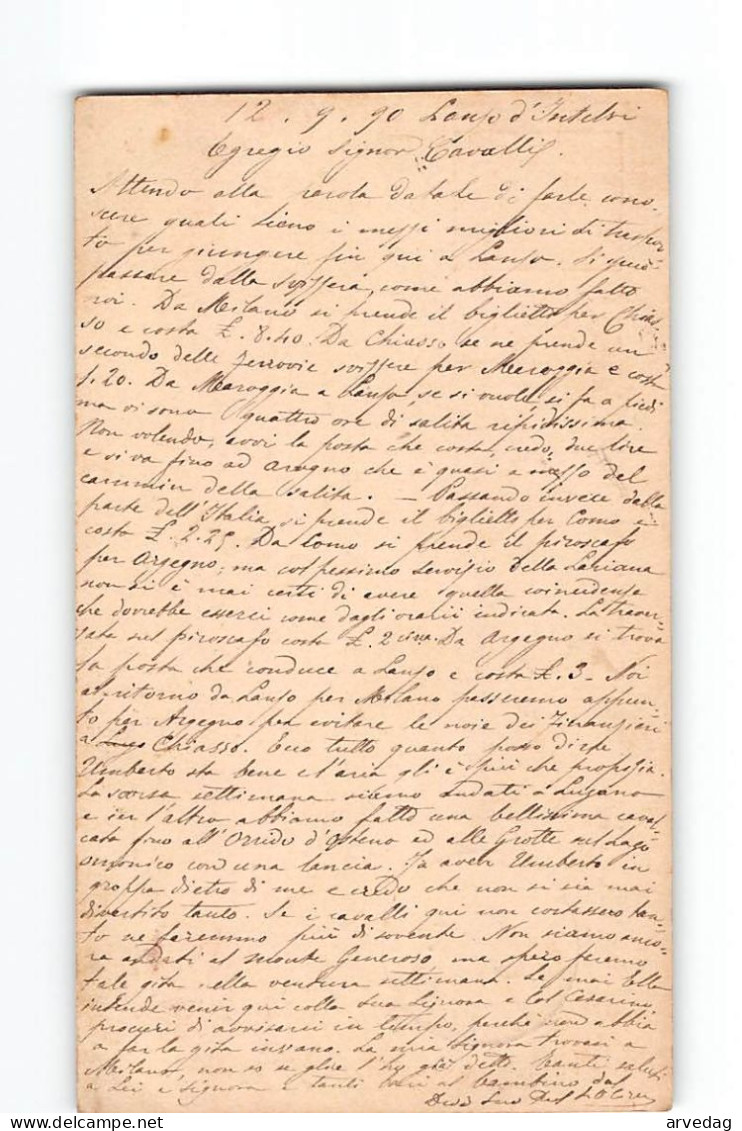 12. 9. 90 Lanzo d'Intelvi
Egregio Signor Cavalli
Attendo alla parola datale di farle cono-
scere quali sieno i mezzi migliori di traspor-
to per giungere fin qui a Lanzo. Si può
passare dalla Svizzera, come abbiamo fatto
noi. Da Milano si prende il biglietto per Chias-
so e costa £. 8.40. Da Chiasso se ne prende un
secondo delle ferrovie svizzere per Maroggia e costa
1.20. Da Maroggia a Lanzo, se si vuole, si fa a piedi
ma vi sono quattro ore di salita ripidissima.
Non volendo, avvi la posta che costa, credo, due lire
e si va fino ad Arogno che è quasi a mezzo del
cammin della salita. — Passando invece dalla
parte dell'Italia si prende il biglietto per Como e
costa £. 2.25. Da Como si prende il piroscafo
per Argegno; ma col pessimo servizio della Lariana
non si è mai certi di avere quella coincidenza
che dovrebbe esserci come dagli orarii indicata. La traver-
sata sul piroscafo costa £. 2 circa. Da Argegno si trova
la posta che conduce a Lanzo e costa £. 3 - Noi
al ritorno da Lanzo per Milano passeremo appun-
to per Argegno per evitare le noie dei
a Chiasso. Ecco tutto quanto posso dirle
Umberto sta bene e l'aria gli è più che propizia.
La scorsa settimana siamo andati a Lugano
e ier l'altro abbiamo fatto una bellissima caval-
cata fino all'Orrido d'Osteno ed alle Grotte sul lago
con una lancia. Umberto in
groppa dietro di me e credo che non si sia mai
divertito tanto. Se i cavalli qui non costassero tan-
to ne faremmo più di sovente. Non siamo anco-
ra andati al monte Generoso ma spero faremo
tale gita nella ventura settimana. Se mai Ella
intende venir qui colla Sua Signora e col Cesarino
procuri di avvisarci in tempo, perchè non abbia
a far la gita invano. La mia Signora trovasi a
Milano, non so se glie l'ho già detto. Tanti saluti
a Lei e signora e tanti baci al bambino dal
Suo